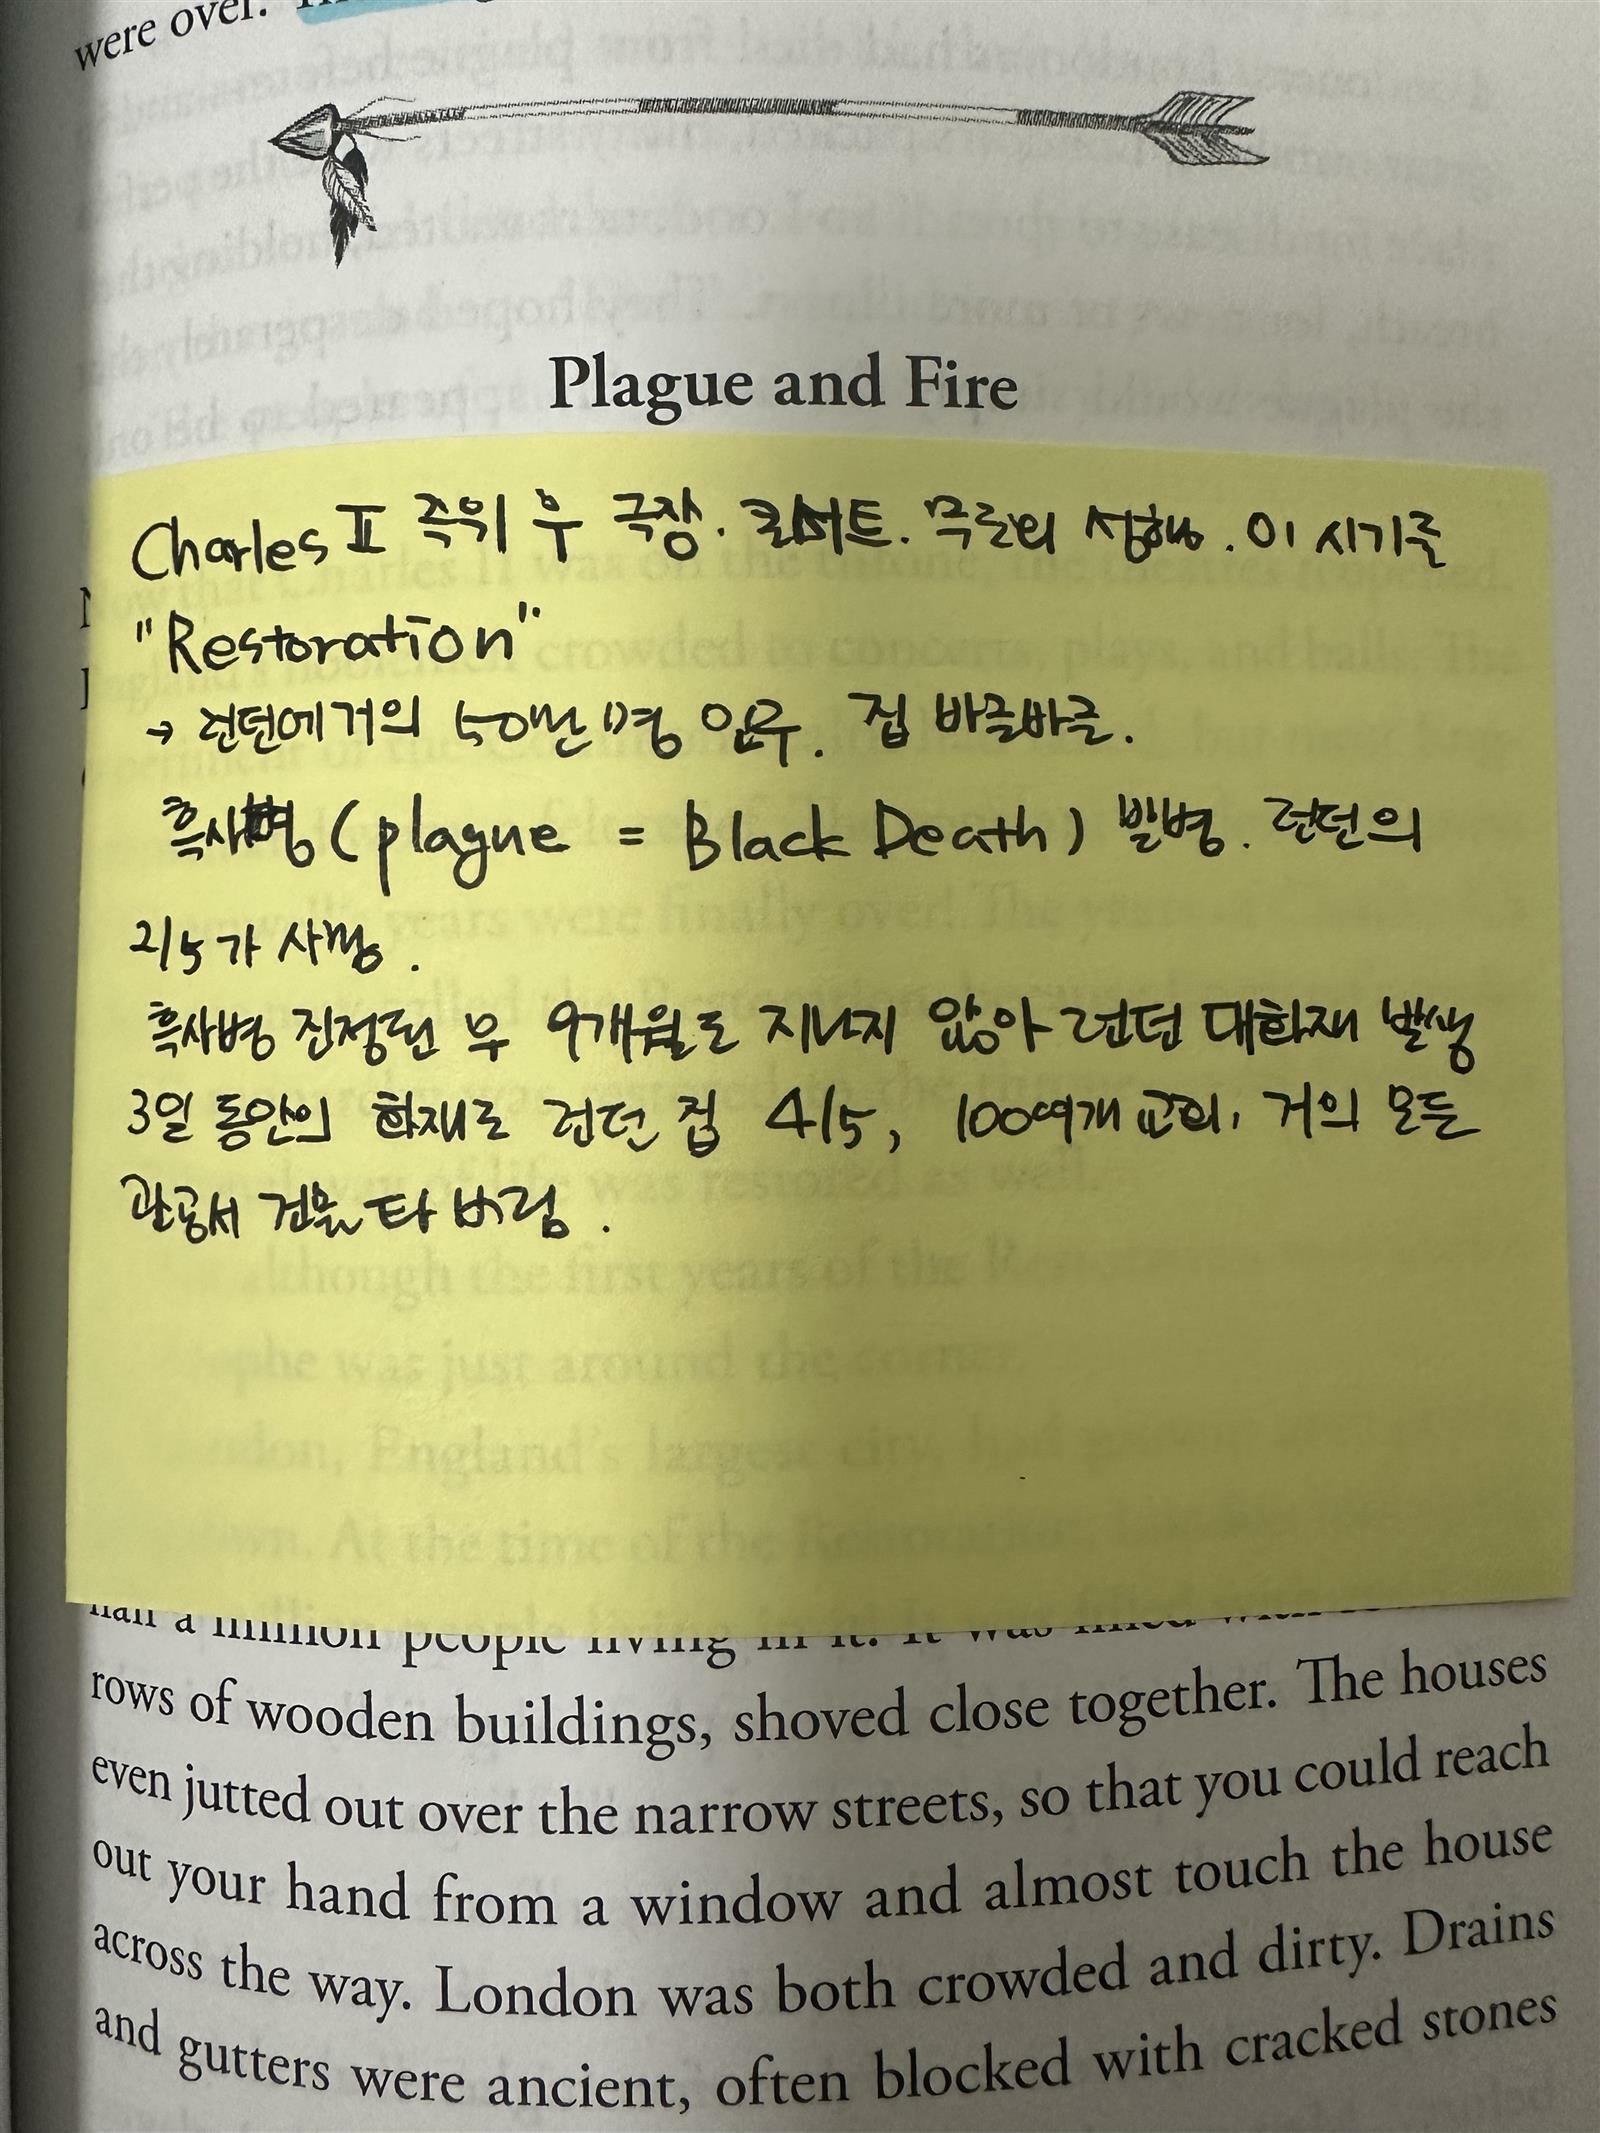 were over.
Plague and Fire
Charles II 즉위 후 극장. 콘서트. 무도회 성행. 이 시기를
"Restoration"
→ 런던에 거의 50만 명 인구. 집 바글바글.
흑사병 (plague = Black Death) 발병. 런던의
2/5가 사망.
흑사병 진정된 후 9개월도 지나지 않아 런던 대화재 발생
3일 동안의 화재로 런던 집 4/5, 100여개 교회, 거의 모든
관공서 건물 타 버림.
half a million people living in it. It was filled with
rows of wooden buildings, shoved close together. The houses
even jutted out over the narrow streets, so that you could reach
out your hand from a window and almost touch the house
across the way. London was both crowded and dirty. Drains
and gutters were ancient, often blocked with cracked stones